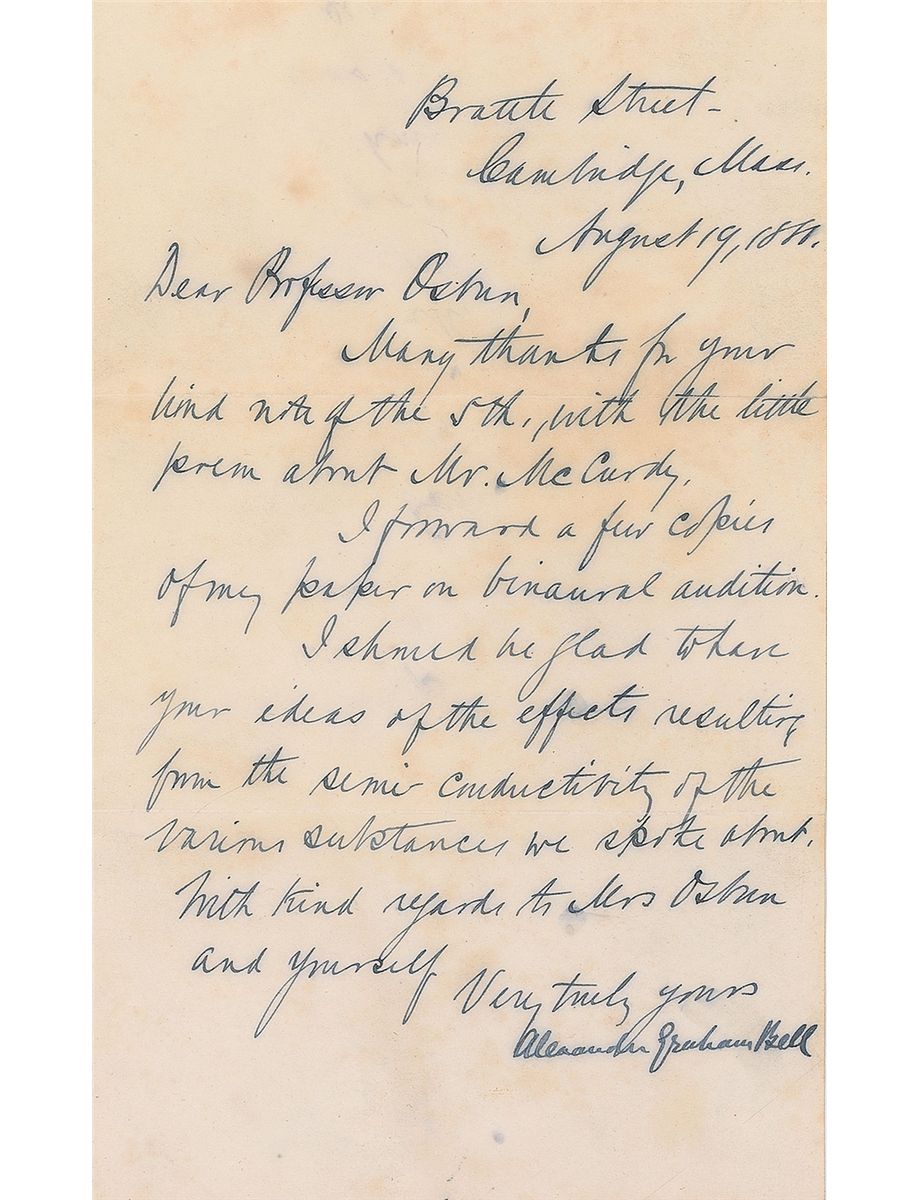 Brattle Street-
Cambridge, Mass.
August 19, 1880.
Dear Professor Osbun,
Many thanks for your
kind note of the 5th., with the little
poem about Mr. McCurdy.
I forward a few copies
of my paper on binaural audition.
I should be glad to have
your ideas of the effects resulting
from the semi conductivity of the
various substances we spoke about.
With kind regards to Mrs Osbun
and yourself
Very truly yours
Alexander Graham Bell